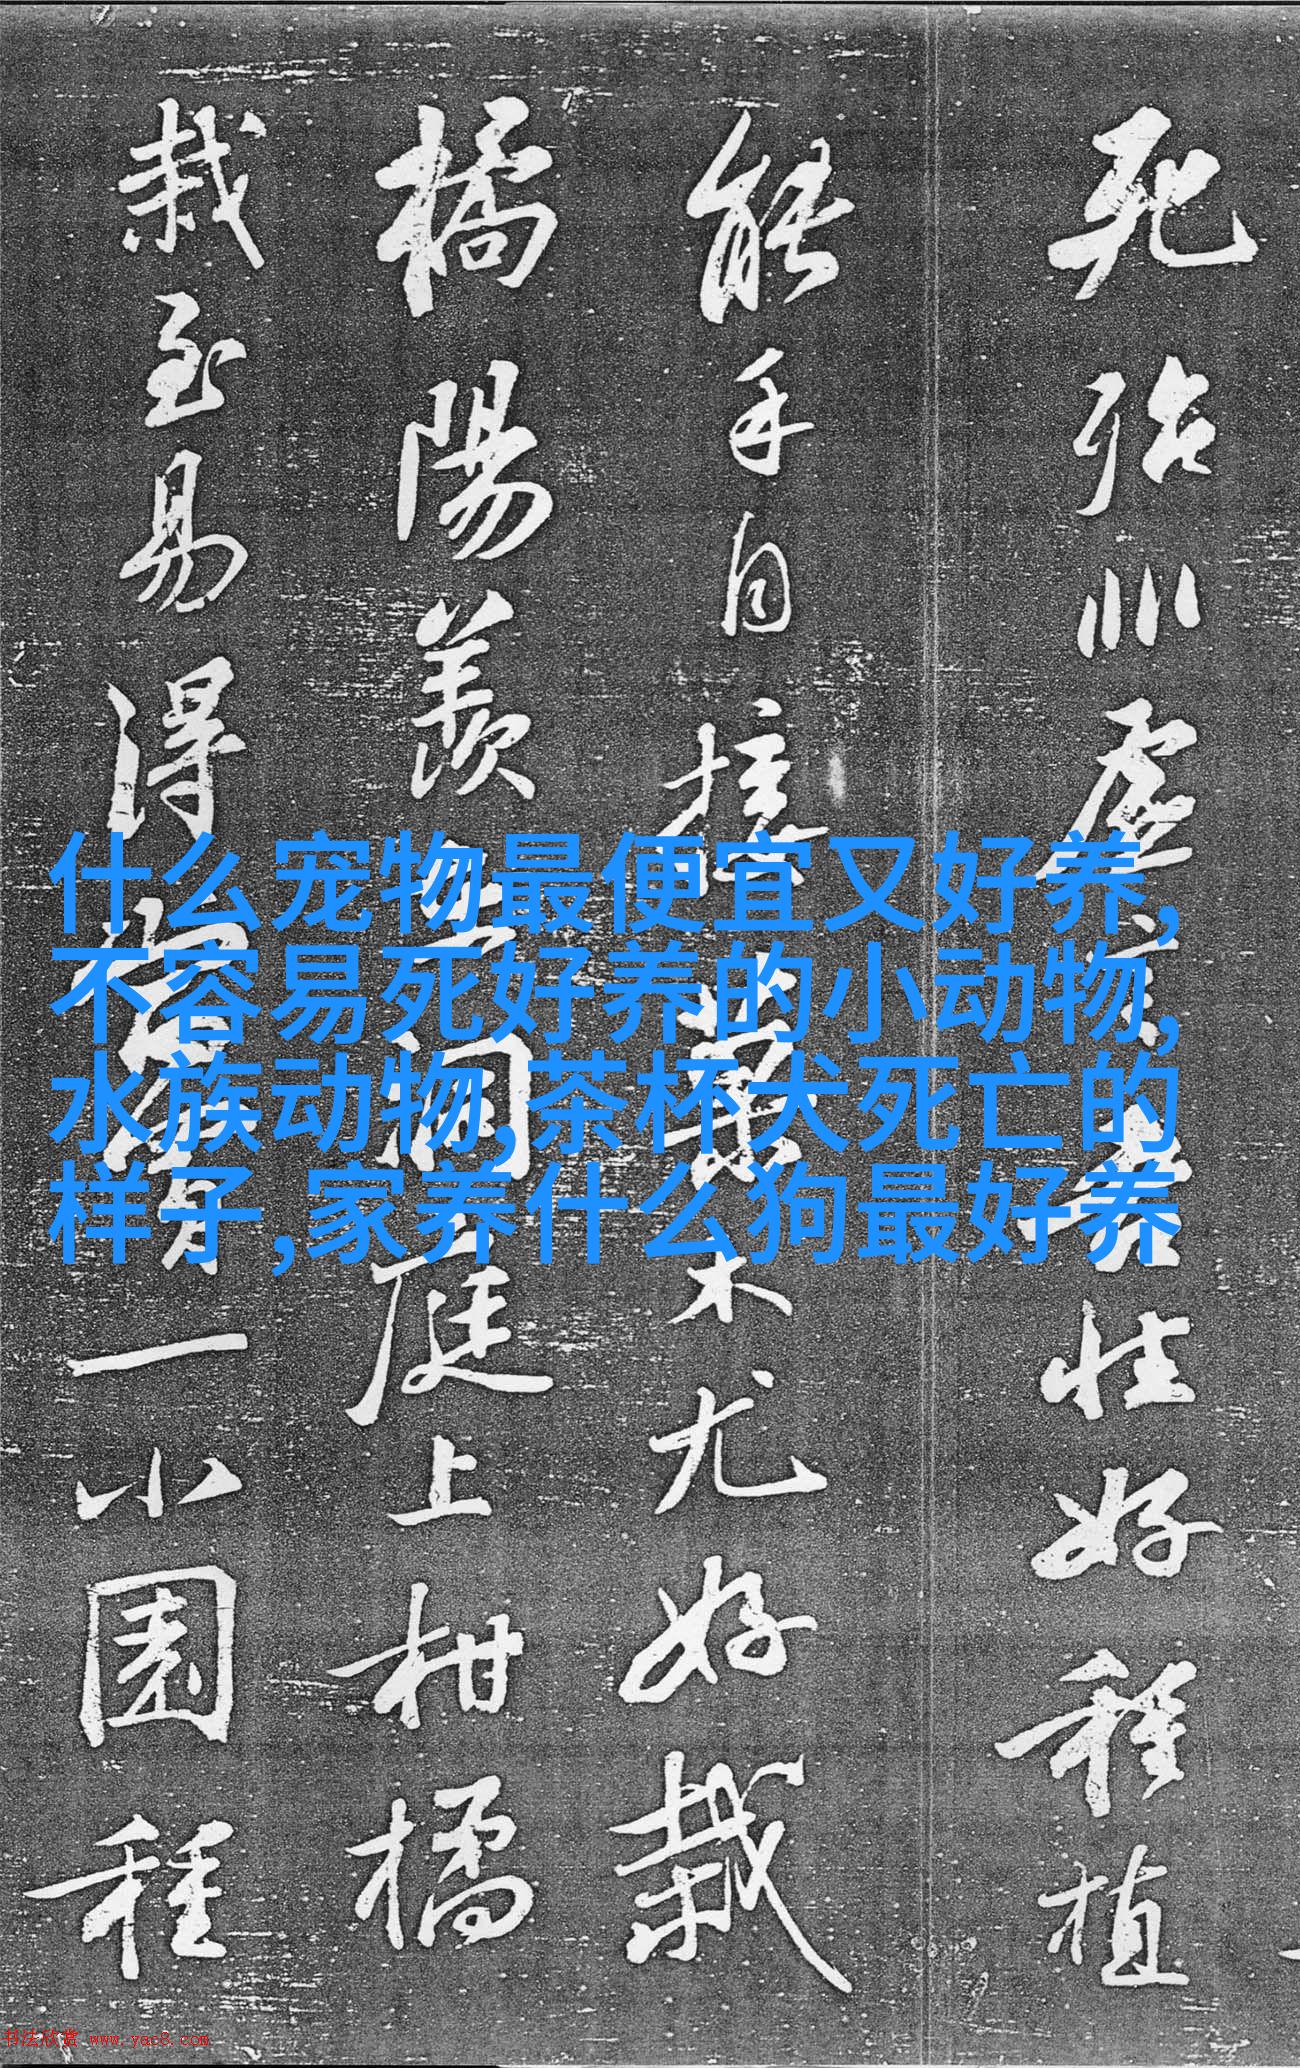 死殆非虛言吾性好種植
能手自接菓木尤好栽
橘陽羨在洞庭上柑橘
栽至易得當買一小園種
什么宠物最便宜又好养,
不容易死好养的小动物,
水族动物,茶杯犬死亡的
样子,家养什么狗最好养
书法欣赏 www.yac8.com